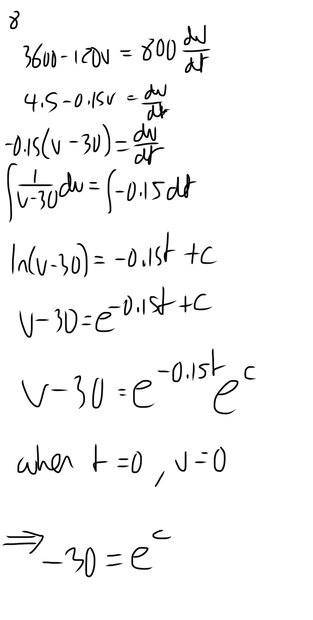 8
3600-120v = 800 dv/dt
4.5-0.15v = dv/dt
-0.15(v-30) = dv/dt
∫ 1/(v-30) dv = ∫ -0.15 dt
ln(v-30) = -0.15t + c
v-30 = e^(-0.15t + c)
v-30 = e^(-0.15t) e^c
when t=0, v=0
⇒ -30 = e^c